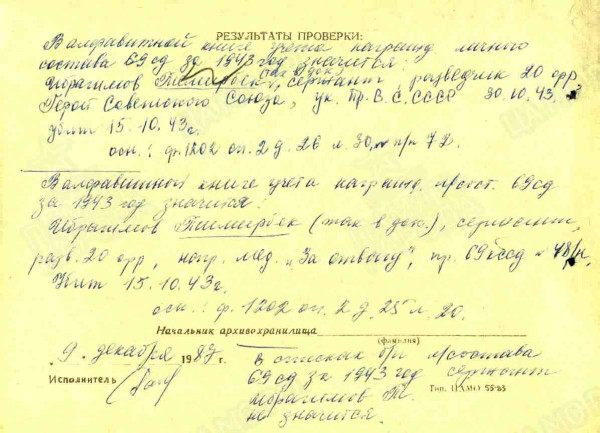 РЕЗУЛЬТАТЫ ПРОВЕРКИ:
В алфавитной книге учета награжд. личного
состава 69 сд за 1943 год значится:
Ибрагимов Тисмирбек, (так в док.) сержант разведчик 20 орр
Герой Советского Союза, ук. Пр. В.С. СССР 30.10.43.
убит 15.10.43 г.
осн.: ф. 1202 оп. 2 д. 26 л. 30, п/п 72.
В алфавитной книге учета награжд. л/сост. 69 сд
за 1943 год значится:
Ибрагимов Тисмирбек (так в док.), сержант,
разв. 20 орр, нагр. мед. „За отвагу", пр. 69 ксд № 48/н.
Убит 15.10.43 г.
осн: ф. 1202 оп. 2 д. 25 л. 20.
Начальник архивохранилища
(фамилия)
9 декабря 1987 г.
Исполнитель
в списках б/п л/состава
69 сд за 1943 год сержант
Ибрагимов Т.
не значится.
Тип. ЦАМО 55-83